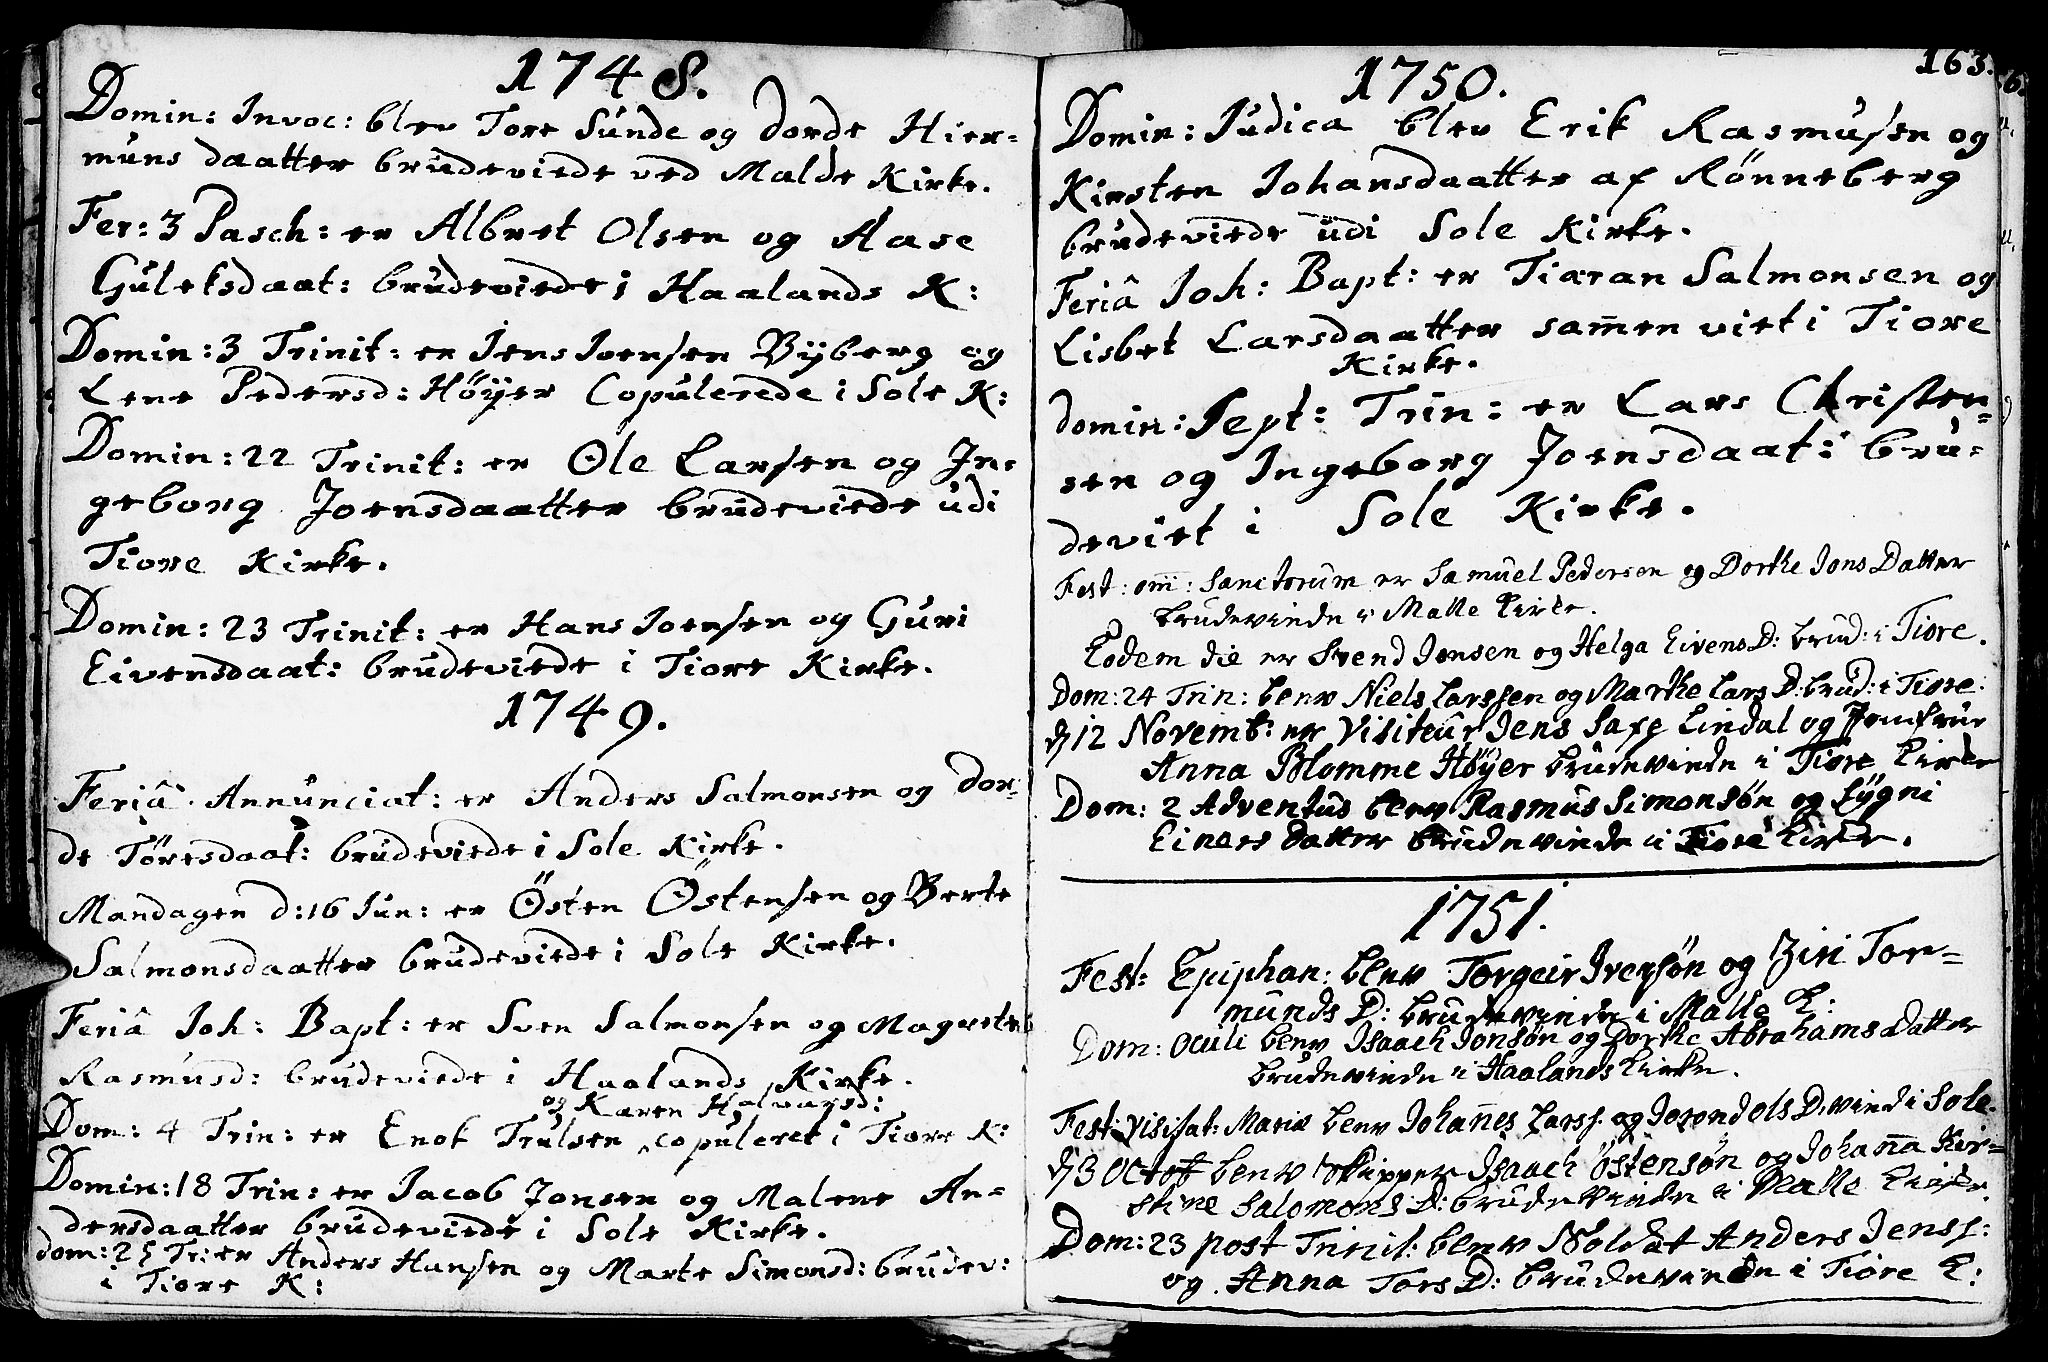 1748.
Domin: Invoc: blev Tore Sünde og Dorde Hier-
müns daatter brüdeviede ved Malde Kirke.
Fer: 3 Pasch: er Albret Olsen og Aase
Güleksdaat: brüdeviede i Haalands K:
Domin: 3 Trinit: er Jens Joensen Byberg og
Lene Pedersd: Höyer Copülerede i Sole K:
Domin: 22 Trinit: er Ole Larsen og In-
geborg Joensdaatter brüdeviede üdi
Tiore Kirke.
Domin: 23 Trinit: er Hans Joensen og Guri
Eivensdaat: brüdeviede i Tiore Kirke.
1749.
Feriâ Annünciat: er Anders Salmonsen og Dor-
de Töresdaat: brüdeviede i Sole Kirke.
Mandagen d: 16 Jun: er Östen Östensen og Berte
Salmonsdaatter brüdeviede i Sole Kirke.
Feriâ Joh: Bapt: er Sven Salmonsen og Magrete
Rasmüsd: brüdeviede i Haalands Kirke.
og Karen Halvarsd:
Dom: 4 Trin: er Enok Trülsen copuleret i Tiore K:
Domin: 18 Trin: er Jacob Jonsen og Malene An-
dersdaatter brüdeviede i Sole Kirke.
Dom: 25 Tr: er Anders Hansen og Marte Simonsd: brüdev:
i Tiore K:
163.
1750.
Domin: Judica blev Erik Rasmusen og
Kirsten Johansdaatter af Rönneberg
brudeviede üdi Sole Kirke.
Feriâ Joh: Bapt: er Tiaran Salmonsen og
Lisbet Larsdaatter sam̄en viet i Tiore
Kirke.
Domin: Sept: Trin: er Lars Christen-
sen og Ingeborg Joensdaat: brü-
deviet i Sole Kirke.
Fest: om̄: Sanctorum er Samuel Pedersen og Dorthe Jons Datter
brudeviede i Malle Kirke.
Eodem die er Svend Jonsen og Helga Eivens D: brud: i Tiore.
Dom: 24 Trin: blev Niels Larssen og Marthe Lars D: brud: i Tiore.
d 12 Novemb: er Visiteur Jens Saxe Lindal og Jomfrue
Anna Blomme Höyer brudeviede i Tiore Kirke
Dom: 2 Adventus blev Rasmus Simonsön og Sygni
Einers Datter brudeviede i Tiore Kirke.
1751.
Fest: Epiphan: blev Torgeir Iversön og Ziri Tor-
munds D: brudeviede i Malle K:
Dom: Oculi blev Isaach Jonsön og Dorthe Abrahams Datter
brudeviede i Haalands Kirke.
Fest: Visitat: Mariæ blev Johan̄es Larss. og Jorond Ols D: viede i Sole.
d 3 Octob blev Skipper Isaach Östensön og Johan̄a Kir-
stine Salomons D: brudeviede i Malle Kirke.
Dom: 23 post Trinit: blev Soldat Anders Jenss:
og Anna Tors D: brudeviede i Tiore K: